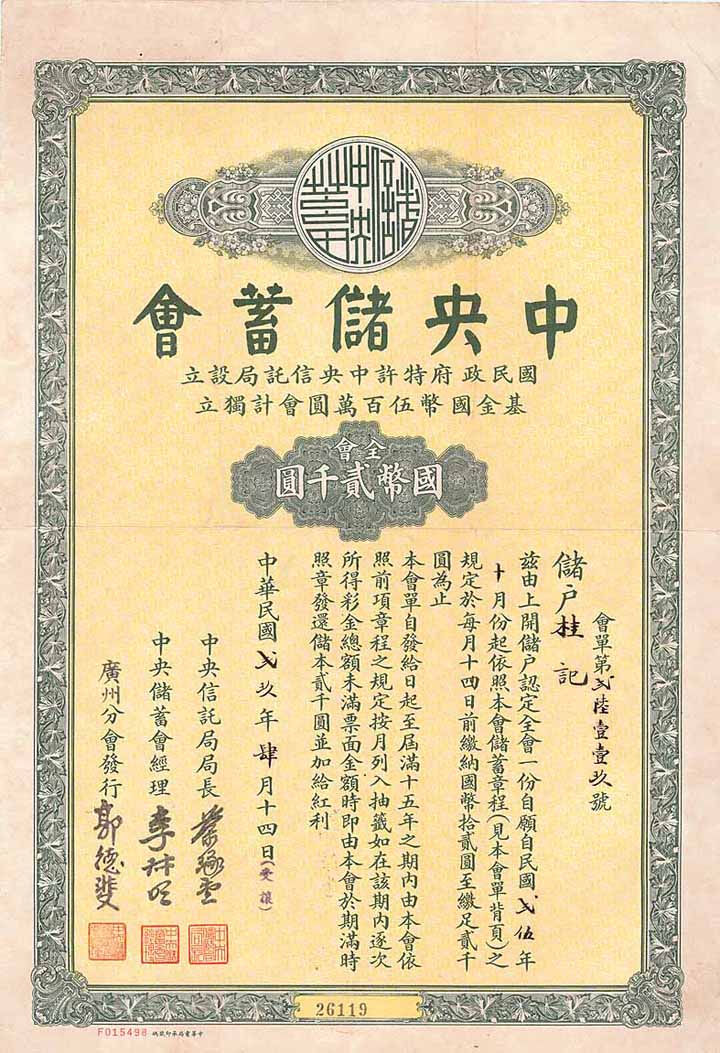 中央儲蓄會
中央儲蓄會
國民政府特許中央信託局設立
基金國幣伍百萬圓會計獨立
全會
國幣貳千圓
會單第弍陸壹壹玖號
儲戶桂記
茲由上開儲戶認定全會一份自願自民國弍伍年
十月份起依照本會儲蓄章程(見本會單背頁)之
規定於每月十四日前繳納國幣拾貳圓至繳足貳千
圓為止
本會單自發給日起至屆滿十五年之期內由本會依
照前項章程之規定按月列入抽籤如在該期內逐次
所得彩金總額未滿票面金額時即由本會於期滿時
照章發還儲本貳千圓並加給紅利
中華民國弍玖年肆月十四日(受讓)
中央信託局局長
中央儲蓄會經理
廣州分會發行
郭德斐
26119
F015498